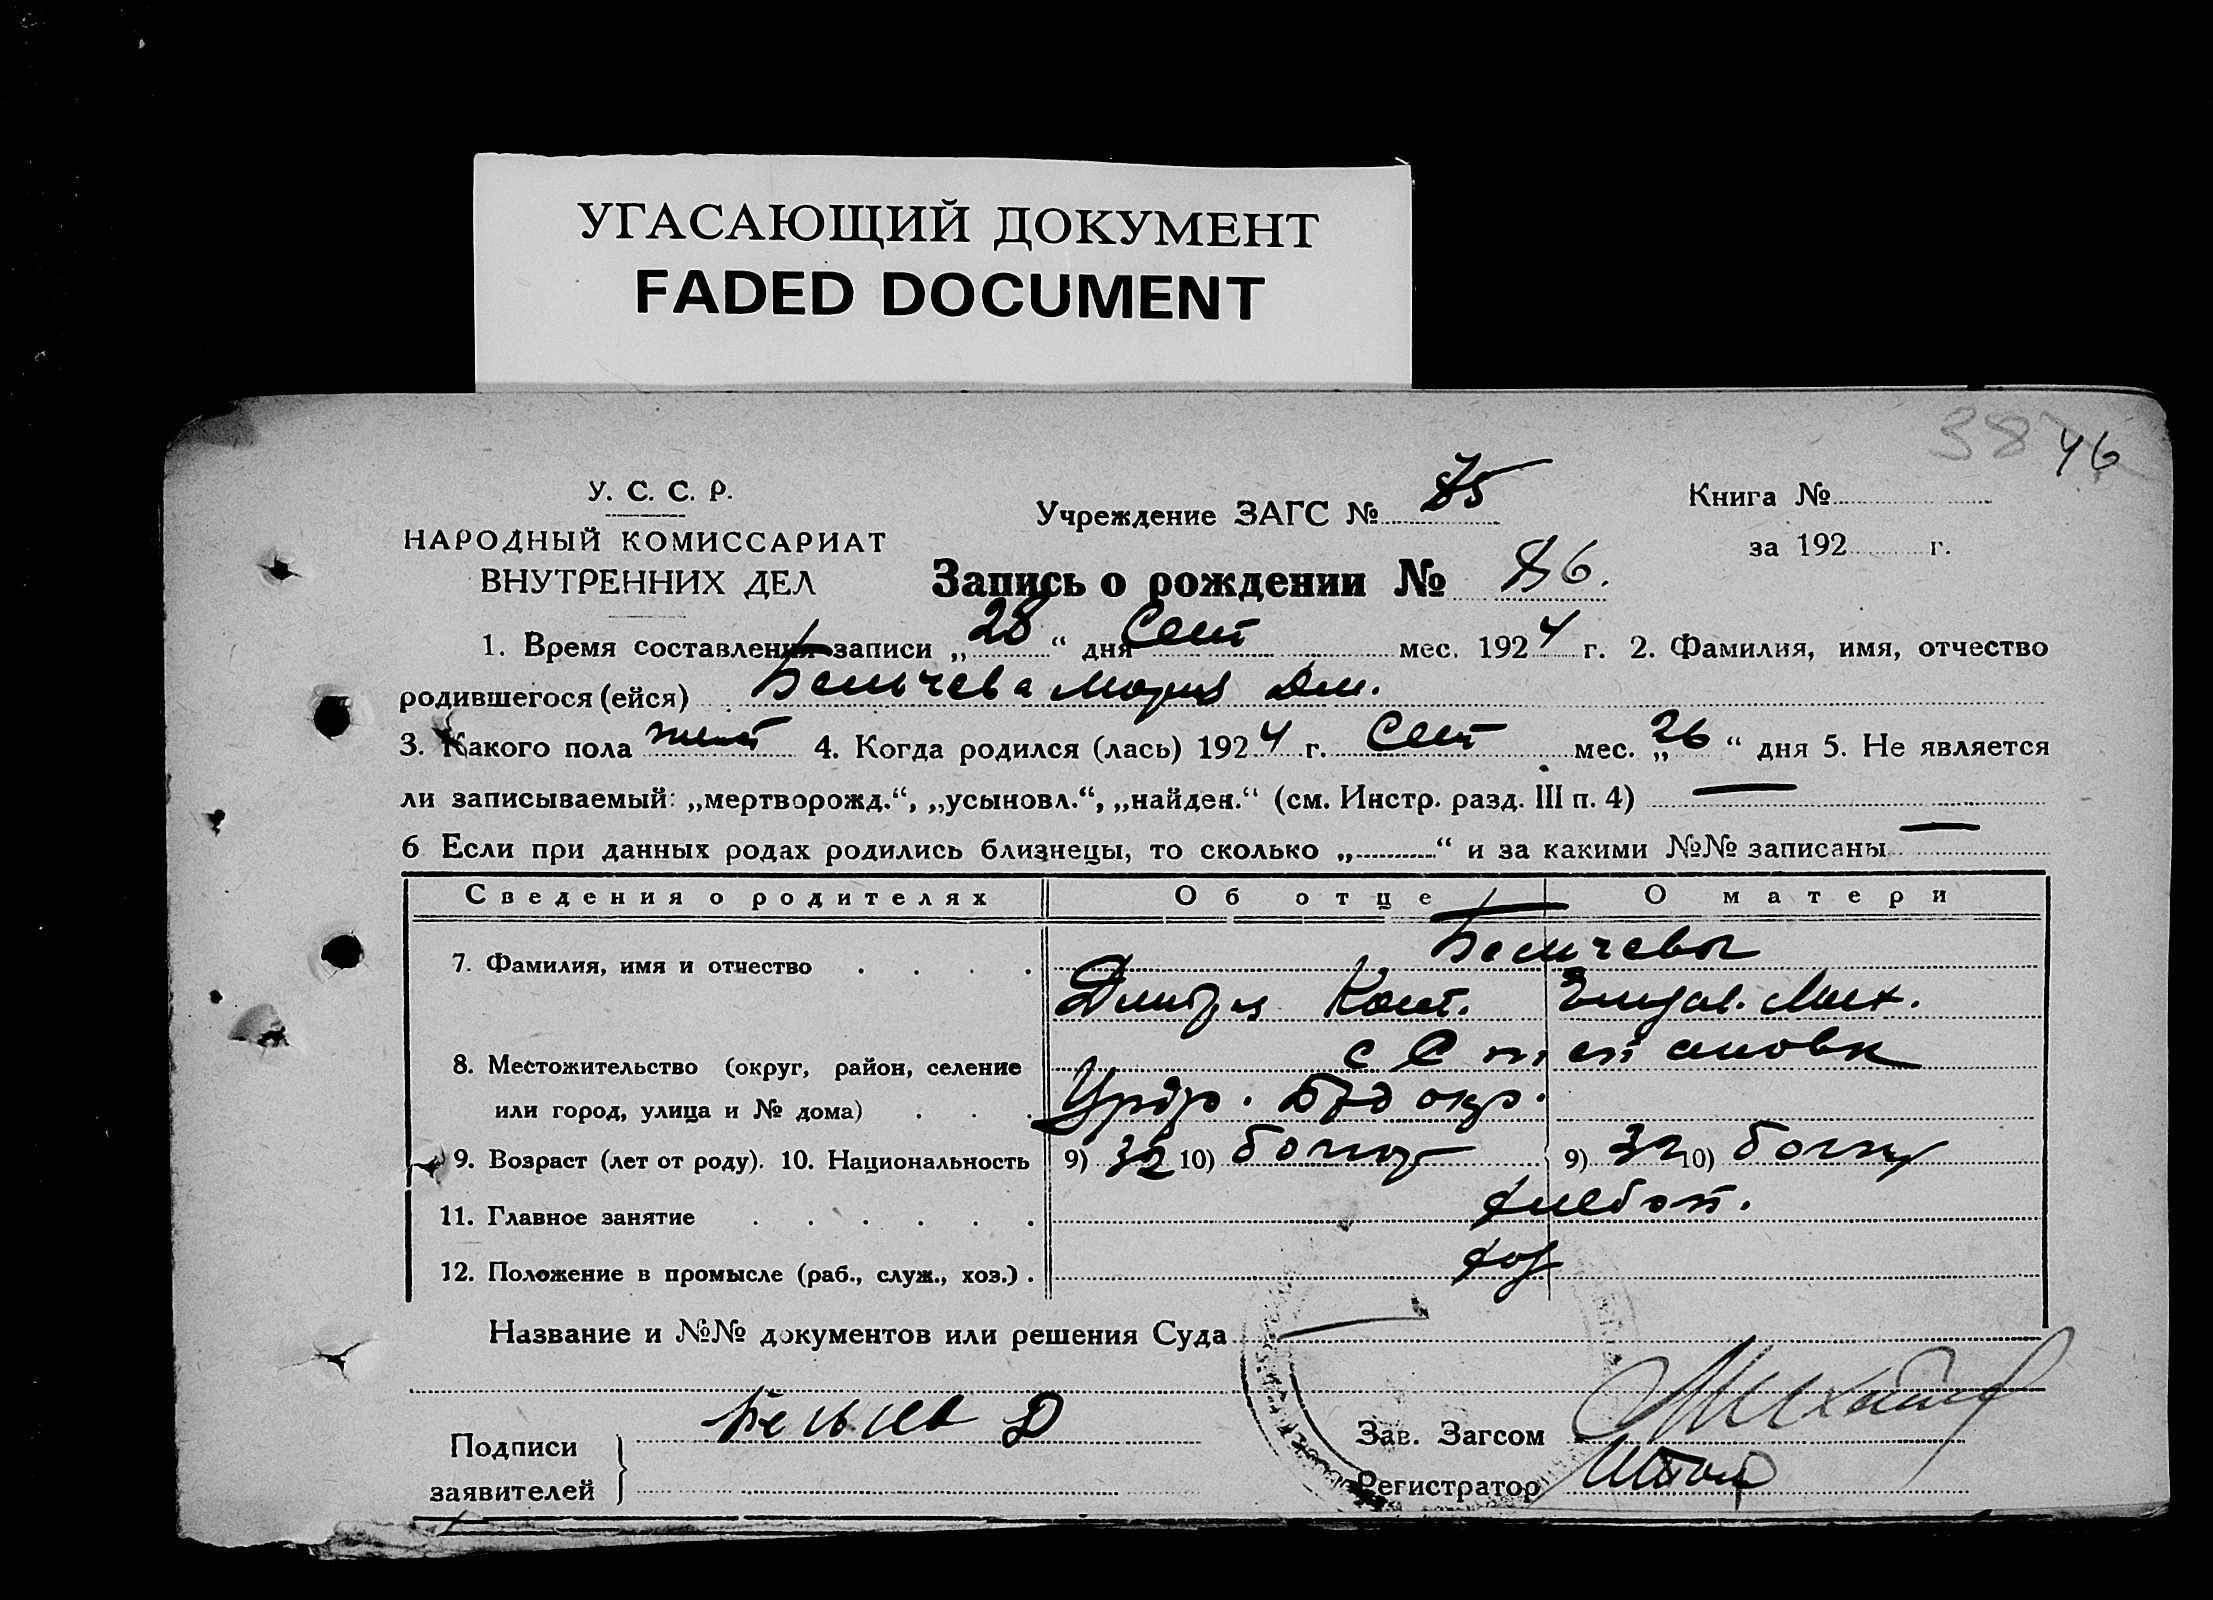 УГАСАЮЩИЙ ДОКУМЕНТ
FADED DOCUMENT
38 46
У. С. С. Р.
НАРОДНЫЙ КОМИССАРИАТ
ВНУТРЕННИХ ДЕЛ
Учреждение ЗАГС №
Книга №
за 192 г.
Запись о рождении № 86.
1. Время составления записи „28“ дня Сент мес. 1924 г. 2. Фамилия, имя, отчество
родившегося (ейся) Бельчева Мария Дм.
3. Какого пола жен 4. Когда родился (лась) 1924 г. Сент мес. „26“ дня 5. Не является
ли записываемый: „мертворожд.“, „усыновл.“, „найден.“ (см. Инстр. разд. III п. 4) —
6 Если при данных родах родились близнецы, то сколько „ “ и за какими №№ записаны —
Сведения о родителях Об отце О матери
7. Фамилия, имя и отчество Бельчевы
Дмитрий Конст. Елизав. Мих.
8. Местожительство (округ, район, селение с
или город, улица и № дома) окр.
9. Возраст (лет от роду). 10. Национальность 9) 32 10) болгар 9) 32 10) болгар
11. Главное занятие хлебоп.
12. Положение в промысле (раб., служ., хоз.) хоз
Название и №№ документов или решения Суда —
Подписи Бельчев Д
заявителей
Зав. Загсом
Регистратор